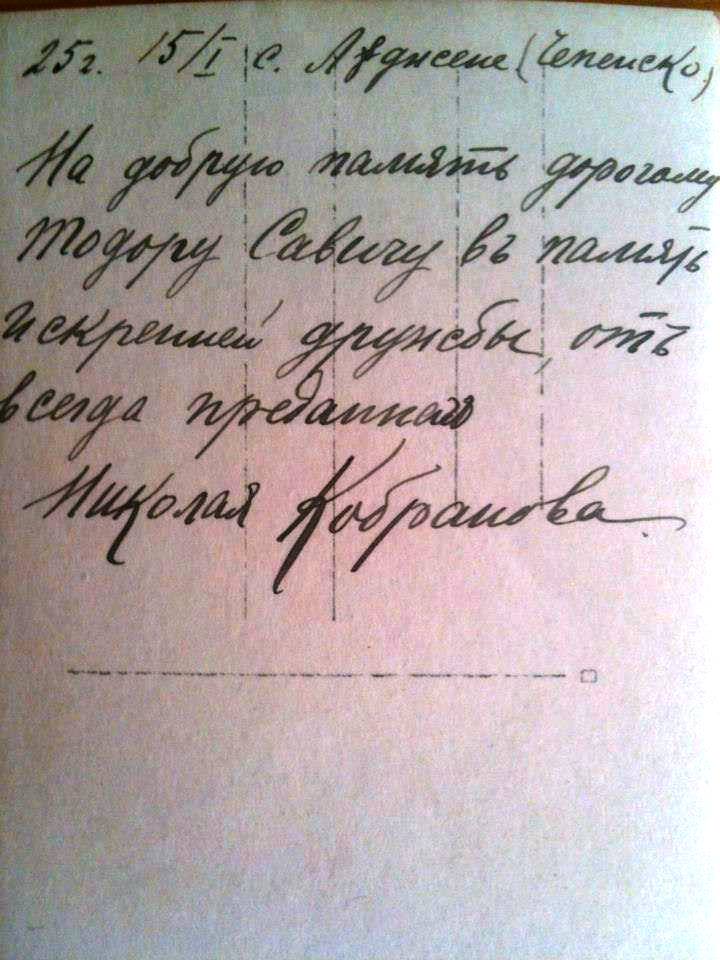 25г. 15/I с. Ауджене (Чепенско)
На добрую память дорогому
Тодору Савичу въ память
искренней дружбы, отъ
всегда преданнаго
Николая Кобранова.